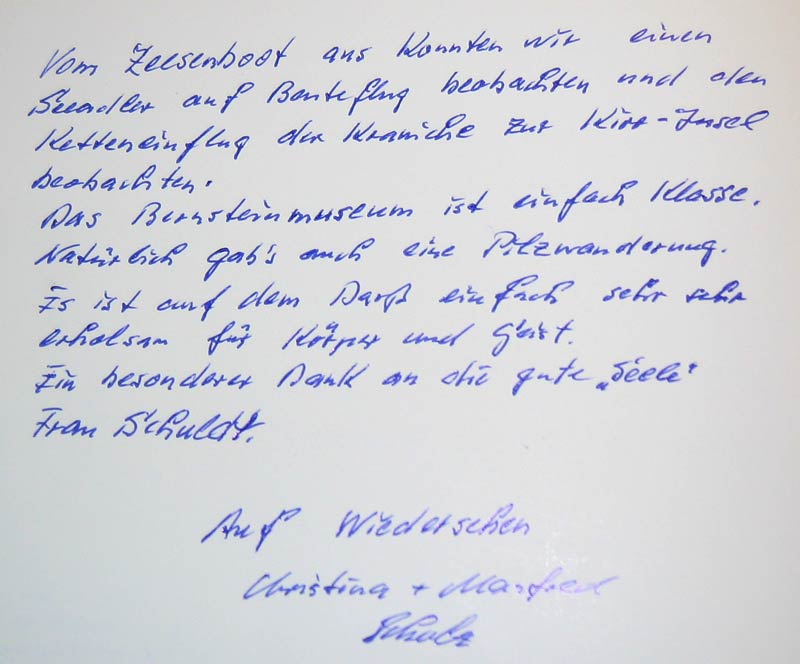 Vom Zeesenboot aus konnten wir einen
Seeadler auf Beuteflug beobachten und den
Ketteneinflug der Kraniche zur Kirr-Insel
beobachten.
Das Bernsteinmuseum ist einfach Klasse.
Natürlich gab's auch eine Pilzwanderung.
Es ist auf dem Darß einfach sehr sehr
erholsam für Körper und Geist.
Ein besonderer Dank an die gute „Seele"
Frau Schuldt.
Auf Wiedersehen
Christina + Manfred
Schulz